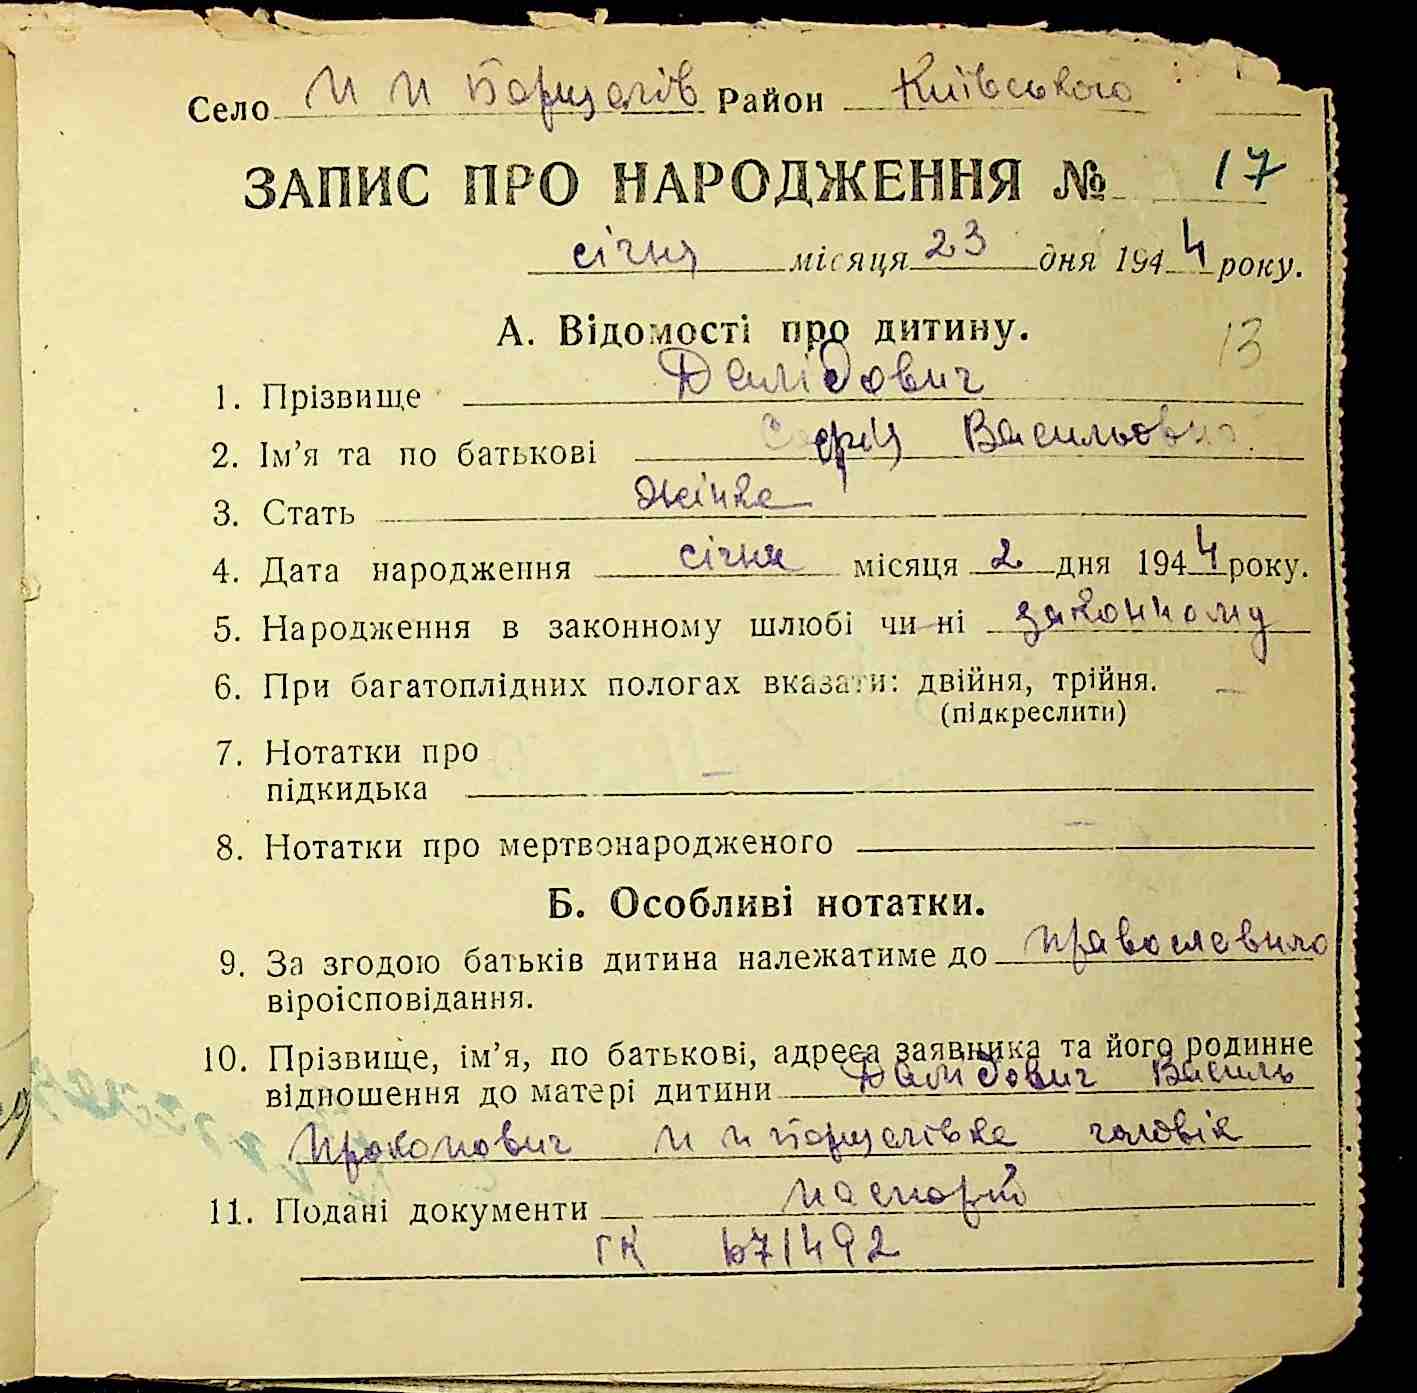 Село П П Борщагів Район Київського
ЗАПИС ПРО НАРОДЖЕННЯ № 17
січня місяця 23 дня 1944 року.
А. Відомості про дитину.
13
1. Прізвище Далідович
2. Ім’я та по батькові Софія Васильовна
3. Стать жінка
4. Дата народження січня місяця 2 дня 1944 року.
5. Народження в законному шлюбі чи ні законному
6. При багатоплідних пологах вказати: двійня, трійня. —
(підкреслити)
7. Нотатки про
підкидька —
8. Нотатки про мертвонародженого —
Б. Особливі нотатки.
9. За згодою батьків дитина належатиме до православного
віроісповідання.
10. Прізвище, ім’я, по батькові, адреса заявника та його родинне
відношення до матері дитини Далідович Василь
Прокопович П П Борщагівка чоловік
11. Подані документи паспорт
ГК 671492